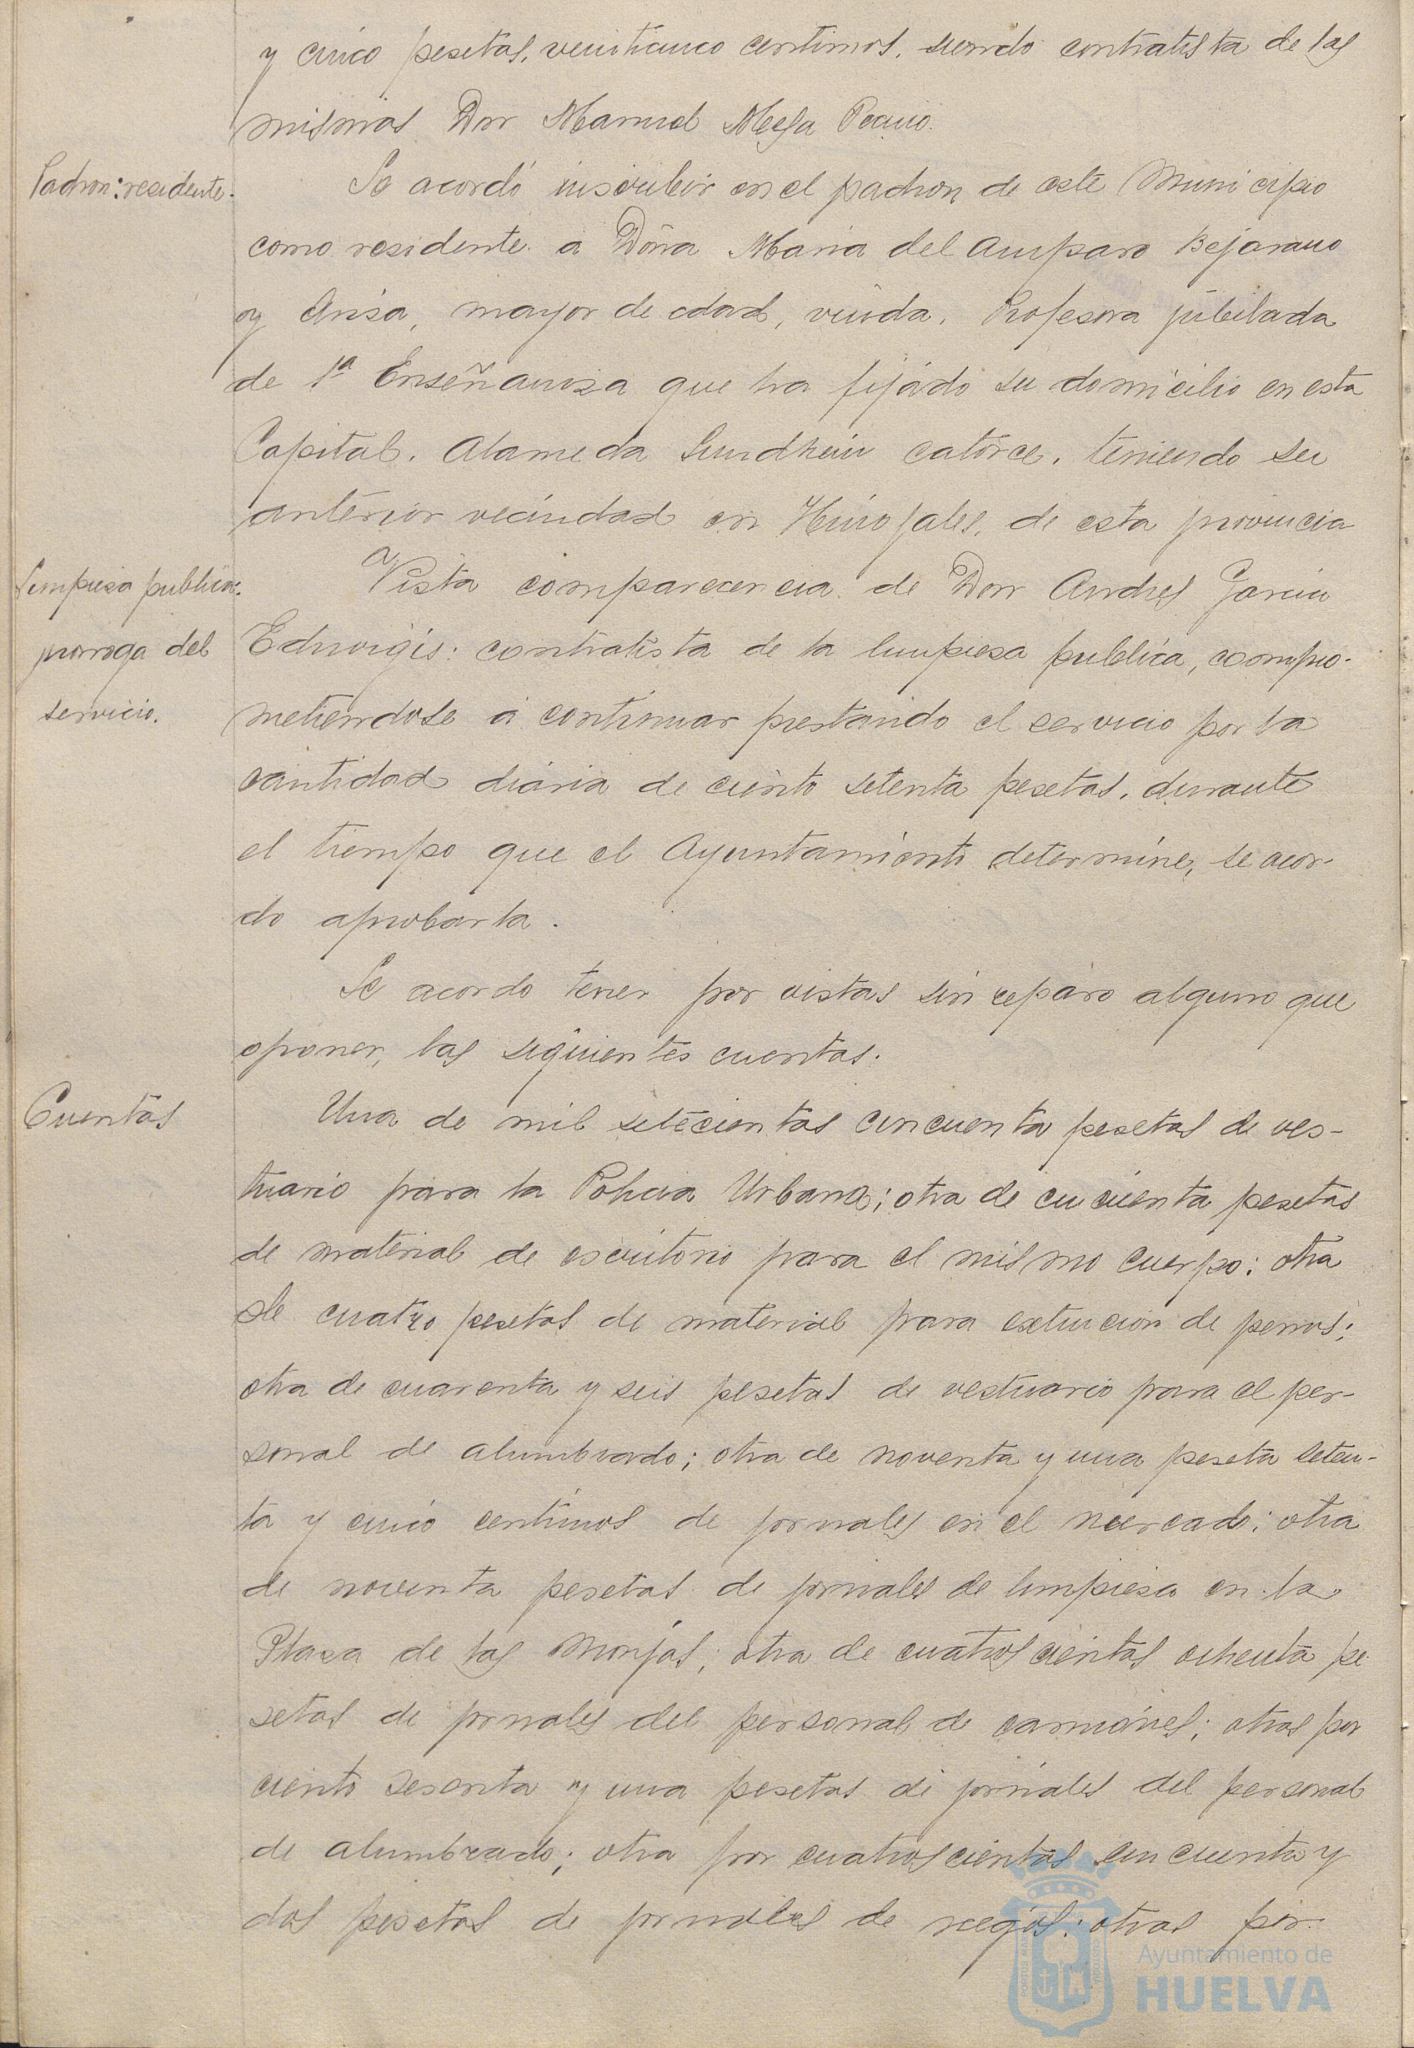 y cinco pesetas, veinticinco centimos, siendo contratista de las
mismas Don Manuel Mesa
Padron: residente.
Se acordó inscribir en el padron de este Municipio
como residente a Doña Maria del Amparo Bejarano
y Ariza, mayor de edad, viuda, Profesora jubilada
de 1ª Enseñanza que ha fijado su domicilio en esta
Capital, Alameda Sundheim catorce, teniendo su
anterior vecindad en Hinojales, de esta provincia
Limpieza publica:
prorroga del
servicio.
Vista comparecencia de Don Andres Garcia
Eduvigis: contratista de la limpieza publica, compro-
metiendose a continuar prestando el servicio por la
cantidad diaria de ciento setenta pesetas, durante
el tiempo que el Ayuntamiento determine, se acor-
do aprobarla.
Se acordo tener por vistas sin reparo alguno que
oponer, las siguientes cuentas.
Cuentas
Una de mil setecientas cincuenta pesetas de ves-
tuario para la Policia Urbana; otra de cincuenta pesetas
de material de escritorio para el mismo cuerpo; otra
de cuatro pesetas de material para extincion de perros;
otra de cuarenta y seis pesetas de vestuario para el per-
sonal de alumbrado; otra de noventa y una peseta seten-
ta y cinco centimos de jornales en el mercado; otra
de noventa pesetas de jornales de limpieza en la
Plaza de las Monjas; otra de cuatroscientas ochenta pe
setas de jornales del personal de camiones; otras por
ciento sesenta y una pesetas de jornales del personal
de alumbrado; otra por cuatroscientas cincuenta y
dos pesetas de jornales de riegos; otras por
Ayuntamiento de
HUELVA